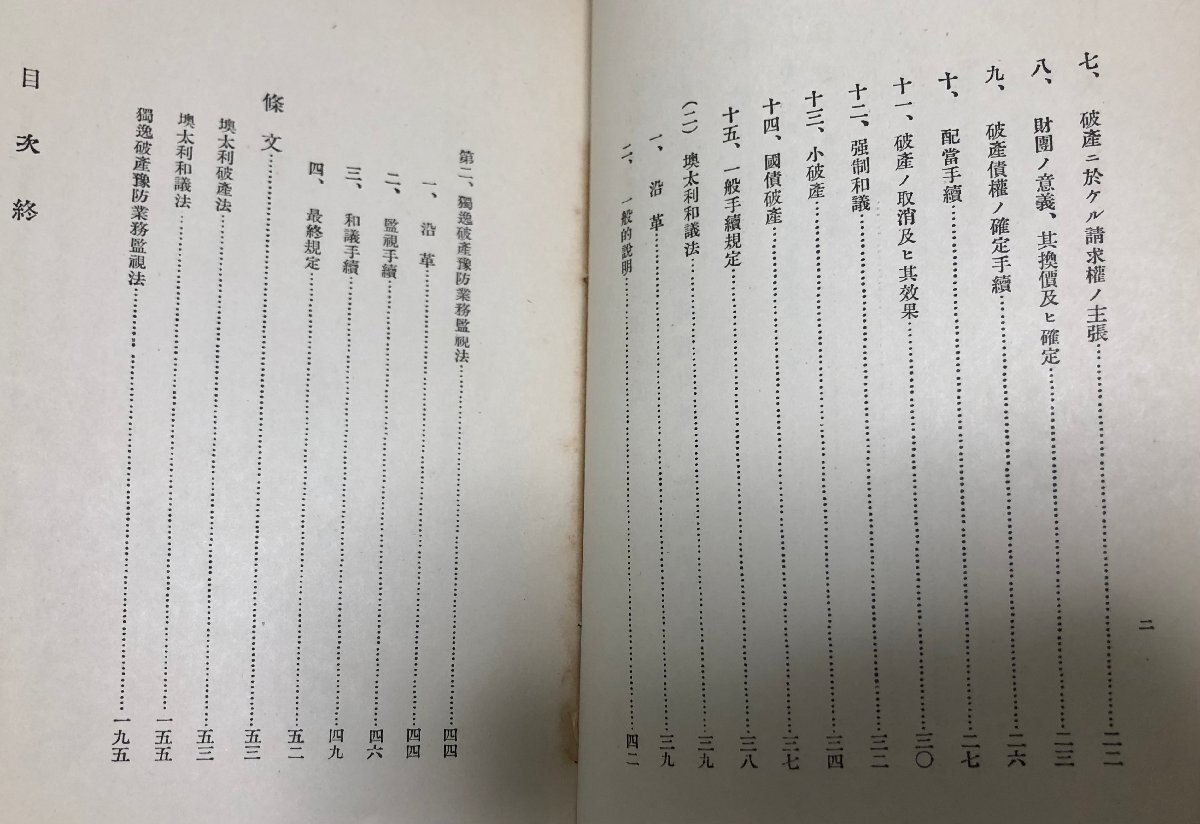 七、破產ニ於ケル請求權ノ主張……二二
八、財團ノ意義、其換價及ヒ確定……二三
九、破產債權ノ確定手續……二六
十、配當手續……二七
十一、破產ノ取消及ヒ其效果……三〇
十二、强制和議……三二
十三、小破產……三四
十四、國債破產……三七
十五、一般手續規定……三八
(二)墺太利和議法……三九
一、沿革……三九
二、一般的說明……四二
二
第二、獨逸破產豫防業務監視法……四四
一、沿革……四四
二、監視手續……四六
三、和議手續……四九
四、最終規定……五二
條文……五三
墺太利破產法……五三
墺太利和議法……一五五
獨逸破產豫防業務監視法……一九五
目次終